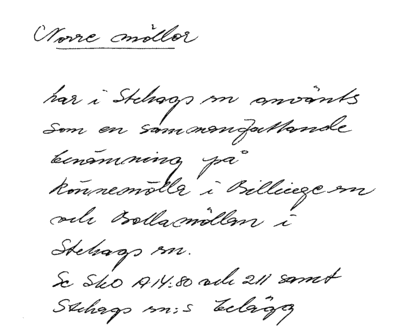 Norre möllor
har i Stehags sn använts
som en sammanfattande
benämning på
Rönnemölla i Billinge sn
och Bollamöllan i
Stehags sn.
Se Sko A14:80 och 211 samt
Stehags sn:s belägg